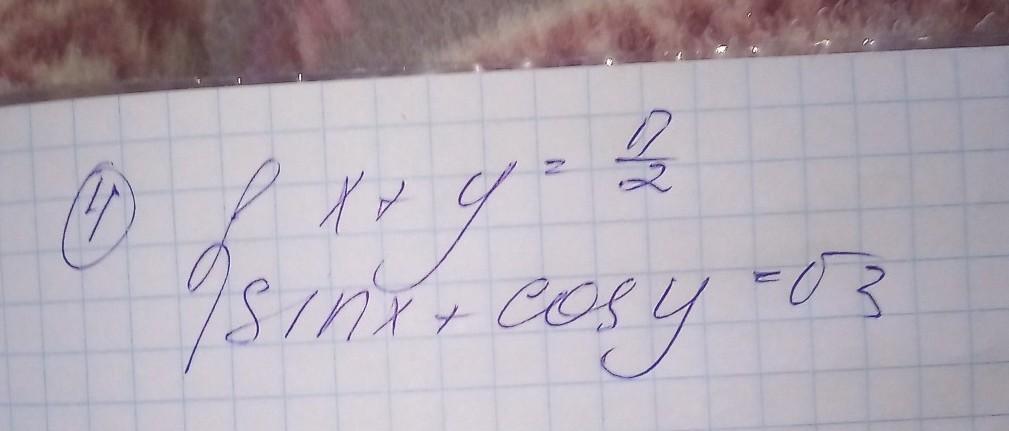 ④ { x + y = π/2
sinx + cosy = √3